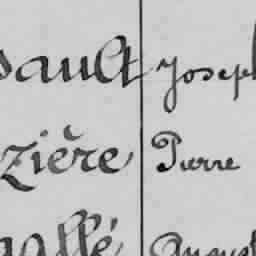 sault Joseph
zière Pierre
allé August